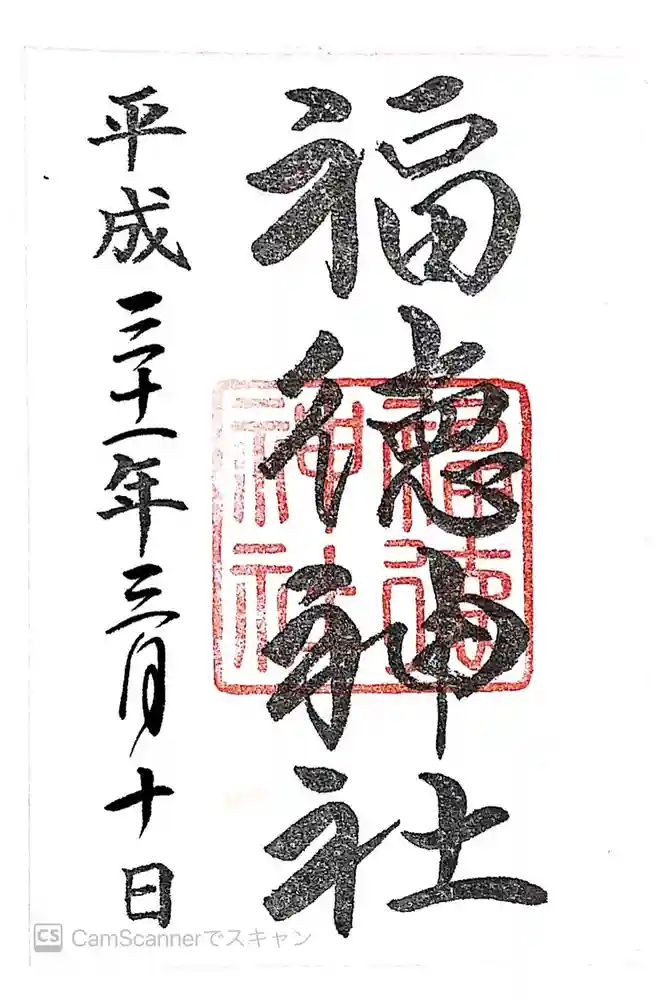 福徳神社
福徳
神社
平成三十一年三月十日
CS CamScannerでスキャン